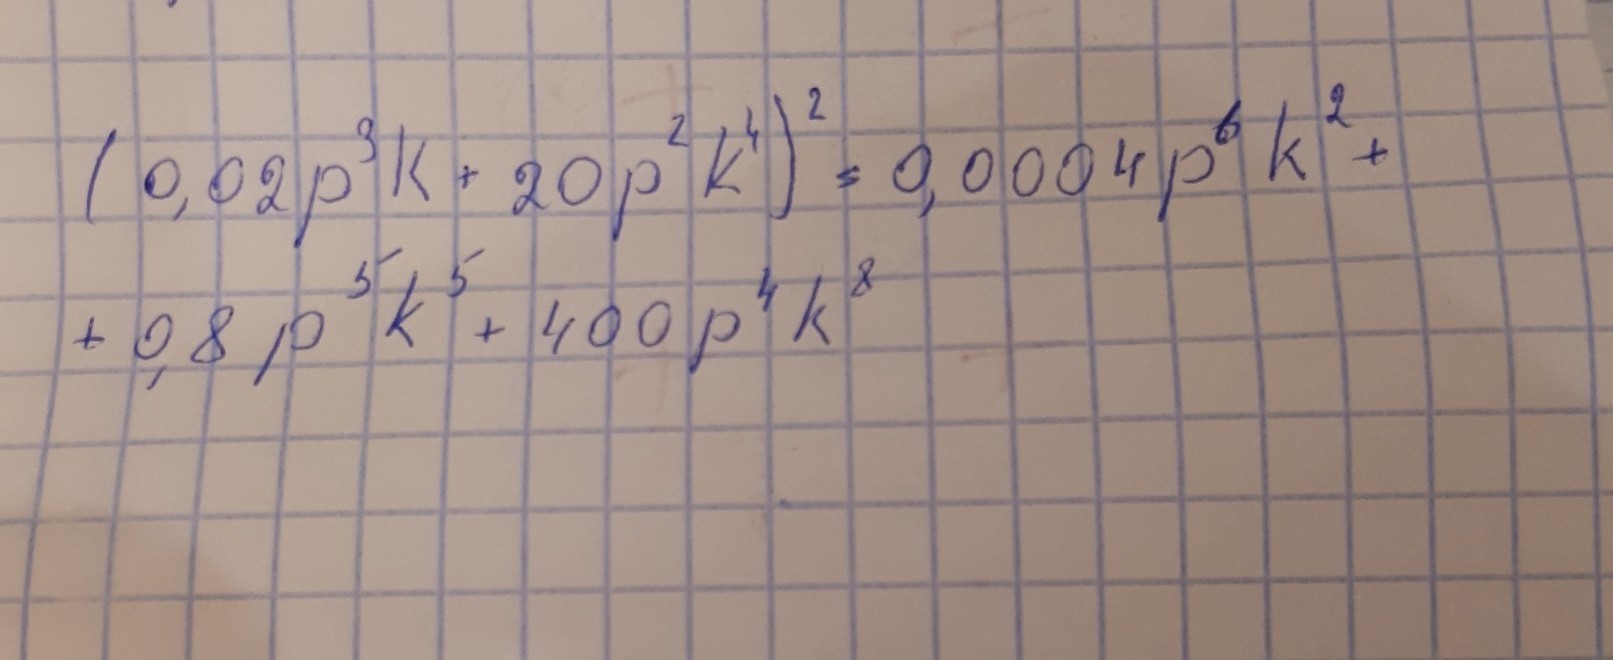 (0,02p³k + 20p²k⁴)² = 0,0004p⁶k² +
+ 0,8p⁵k⁵ + 400p⁴k⁸